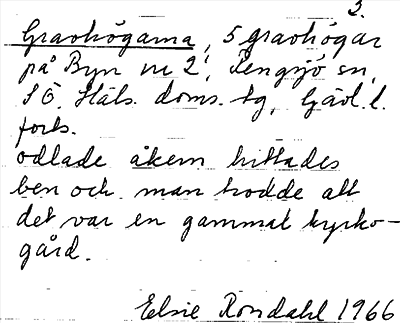 3.
Gravhögarna, 5 gravhögar
på Byn nr 2, Rengsjö sn,
SÖ. Häls. doms. tg, Gävl. l.
forts.
odlade åkern hittades
ben och man trodde att
det var en gammal kyrko-
gård.
Elsie Rondahl 1966